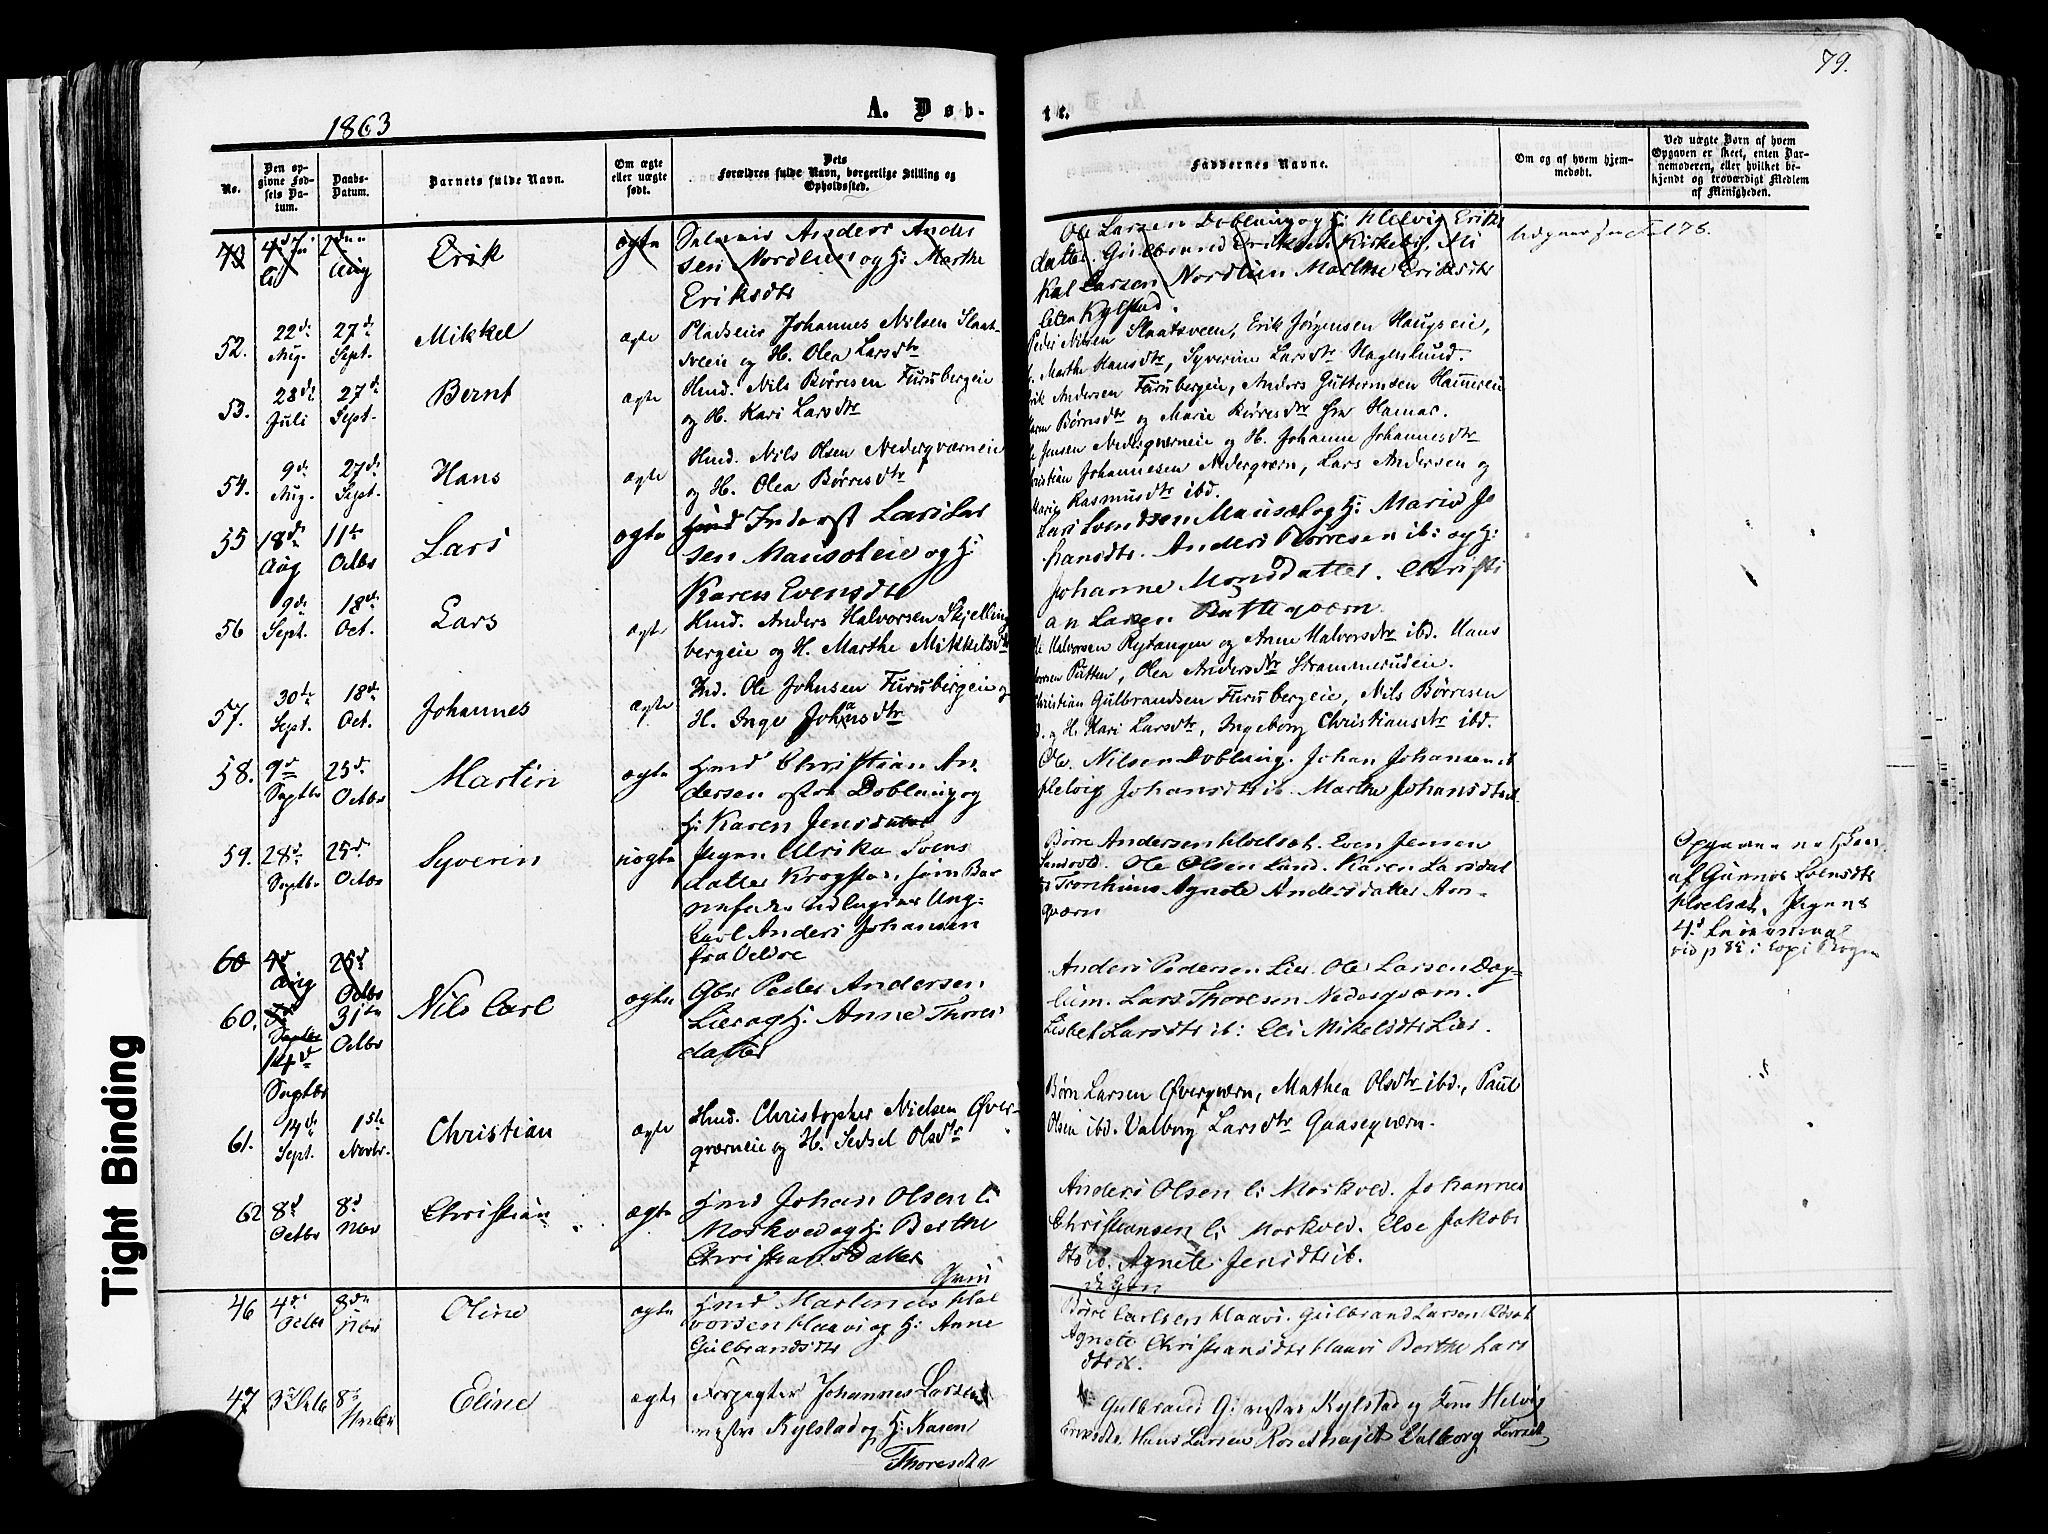 79.
A. Døb-
te.
1863
No.
Den op-
givne Fød-
sels Da-
tum.
Daabs-
Datum.
Barnets fulde Navn.
Om ægte
eller uægte
født.
Dets
Forældres fulde Navn, borgerlige Stilling og
Opholdssted.
Faddernes Navne.
Om og af hvem hjem-
medøbt.
Ved uægte Børn af hvem
Opgaven er skeet, enten Bar-
nemoderen, eller hvilket be-
kjendt og troværdigt Medlem
af Menigheden.
Aug
Erik
ægte
Anders Ander
sen Nordlien og H: Marthe
Eriksdtr
Ole Larsen Doblaug og H: Helvig Eriks
datter. Gulbrand Eriksen Kirkeby, Mi
kal Larsen Nordlien Marthe Eriksdtr
Kylstad.
52.
22de
Aug.
27de
Sept.
Mikkel
ægte
Pladseie Johannes Nilsen Slaat-
sveie og H. Olea Larsdtr
Peder Nilsen Slaatsveen, Erik Jørgensen Haugseie,
Marthe Hansdtr, Syverine Larsdtr Hagerlund.
53.
28de
Juli
27de
Sept.
Bernt
ægte
Hmd. Nils Børresen Furubergeie
og H. Kari Larsdtr
Erik Andersen Furubergeie, Anders Guttormsen
Børresdtr og Marie Børresdtr fra Hamar.
54.
9de
Aug.
27de
Sept.
Hans
ægte
Hmd. Nils Olsen Nederqværneie
og H. Olea Børresdtr
Jensen Nederqværneie og H. Johanne Johannesdtr
Christian Johannesen Nederqværn, Lars Andersen og
Marie Rasmusdtr ibd.
55
18de
Aug
11te
Octbr
Lars
ægte
Hmd Inderst Lars Lar
sen Mauseteie og H:
Karen Evensdtr
Lars Svendsen Mauset og H: Marie Jo
hansdtr. Anders Børresen ib: og H:
Johanne Monsdatter. Christi
an Larsen
56
9de
Sept.
18de
Oct.
Lars
ægte
Hmd. Anders Halvorsen Skjelling
bergeie og H. Marthe Mikkelsdtr
Ole Halvorsen Rystangen og Anne Halvorsdtr ibd. Hans
Olea Andersdtr Strammerudeie.
57.
30te
Sept.
18de
Oct.
Johannes
ægte
Ind. Ole Johnsen Furubergeie og
H. Inge Johansdtr
Christian Gulbrandsen Furubergeie, Nils Børresen
og H. Kari Larsdtr, Ingeborg Christiansdtr ibd.
58.
9de
Septbr
25de
Octbr
Martin
ægte
Hmd Christian An
dersen østre Doblaug og
H: Karen Jensdatter
Ole Nilsen Doblaug. Johan Johansen ib
Helvig Johansdtr ib. Marthe Johansdtr ib
59.
28de
Septbr
25de
Octbr
Syverin
uægte
Pigen Ulrike Svens
datter Krogstad, som Bar
nefader udlægges Ung-
karl Anders Johansen
fra Veldre
Børre Andersen Hoelset. Even Jensen
Sandvold. Ole Olsen Lund. Karen Larsdat
Agnete Andersdatter
qværn
af Gunnor Svensdtr
Hoelset. Pigens
4de Leiermaal
vid p 85 i Copi Bogen
60
4de
Aug
25de
Octbr
60.
Septbr
14de
Septbr
31te
Octbr
Nils Carl
ægte
Gbr Peder Andersen
Lier og H. Anne Thores
datter
Anders Pedersen Lier. Ole Larsen Dag-
lum. Lars Thoresen Nederqværn.
Lisbet Larsdtr ib: Eli Mikelsdtr Lier.
61.
14de
Sept.
1ste
Novbr.
Christian
ægte
Hmd. Christopher Nielsen Øver-
qværneie og H. Sedsel Olsdtr
Børn Larsen Øverqværn, Mathea Olsdtr ibd., Paul
Olsen ibd. Valborg Larsdtr Gaaseqværn.
62
8de
Octbr
8de
Nov
Christian
ægte
Hmd Johan Olsen li
Morkved og H: Berthe
Christiansdatter
Anders Olsen li Morkved. Johannes
Christiansen li Morkved. Else Jakobs
dtr ib. Agnete Jensdtr ib.
46
4de
Octbr
8de
Nbr
Oline
ægte
Hmd Martinus Hal
vorsen Haavi og H: Anne
Gulbrandsdtr
Børre Carlsen Haavi. Gulbrand Larsen
Agnete Christiansdtr Haavi Berthe Lars
dtr ib.
47
8de
Eline
ægte
Forpagter Johannes Larsen
vestre Kylstad og H: Karen
Thoresdtr
Gulbrand vestre Kylstad og Helvig
Hans Larsen Valborg